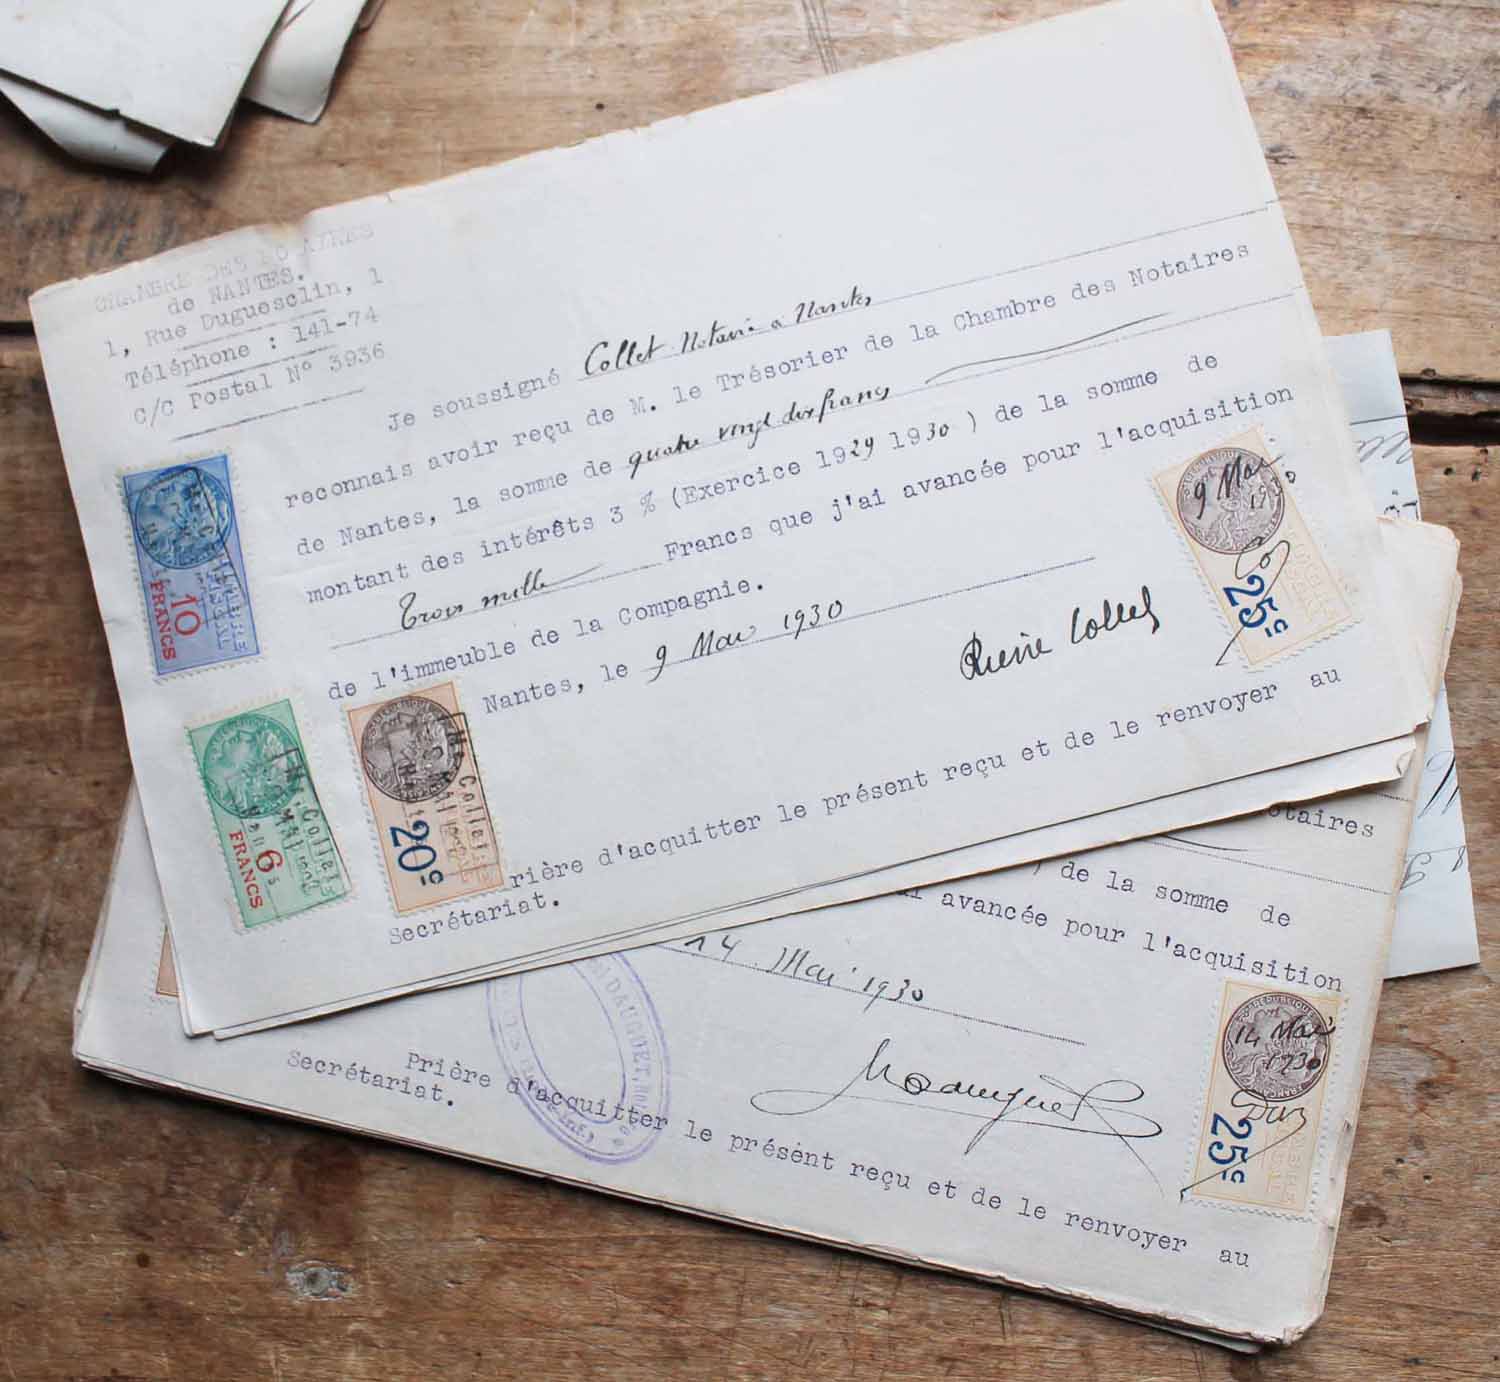 CHAMBRE DES NOTAIRES
de NANTES.
1, Rue Duguesclin, 1
Téléphone : 141-74
C/C Postal N° 3936
Je soussigné Collet Notaire à Nantes
reconnais avoir reçu de M. le Trésorier de la Chambre des Notaires
de Nantes, la somme de quatre vingt dix francs
montant des intérêts 3 % (Exercice 1929 1930 ) de la somme de
Trois mille Francs que j'ai avancée pour l'acquisition
de l'immeuble de la Compagnie.
Nantes, le 9 Mai 1930
Pierre Collet
rière d'acquitter le présent reçu et de le renvoyer au
Secrétariat.
10
FRANCS
TIMBRE
FISCAL
6
FRANCS
Me Collet
20c
Me Collet
9 Mai
1930
25c
otaires
) de la somme de
ai avancée pour l'acquisition
14 Mai 1930
Prière d'acquitter le présent reçu et de le renvoyer au
Secrétariat.
14 Mai
1930
25c